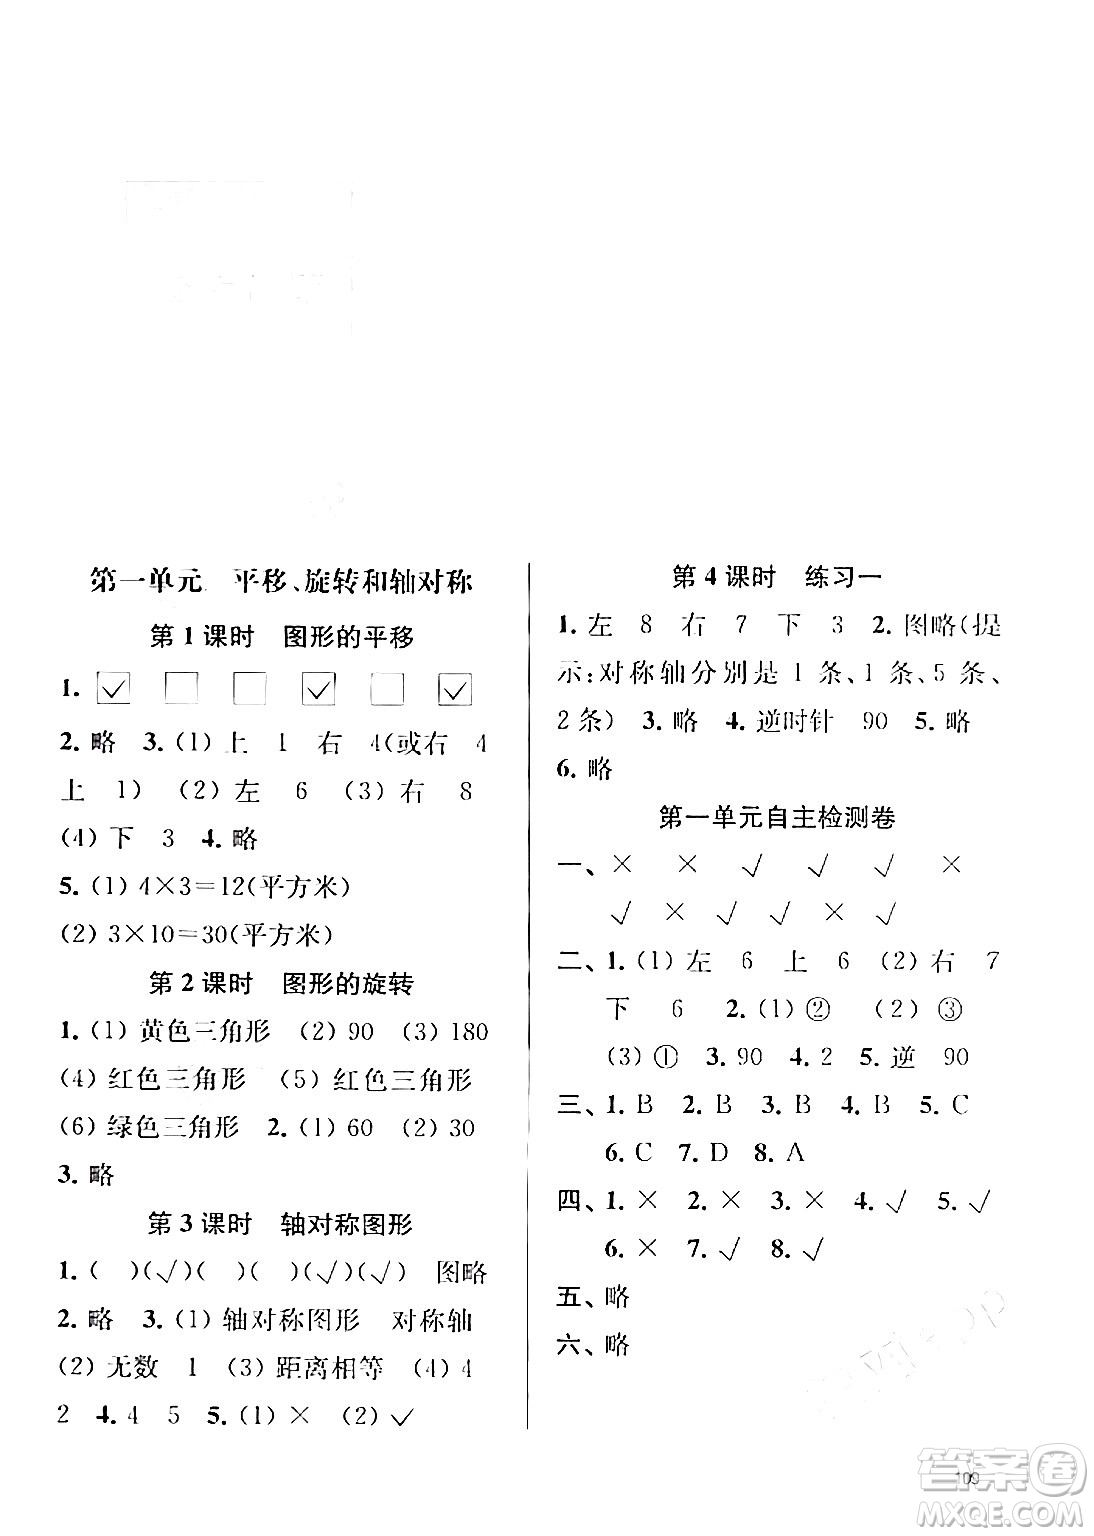 第一单元 平移、旋转和轴对称
第 1 课时 图形的平移
1. ☑ □ □ ☑ □ ☑
2. 略 3. (1) 上 1 右 4(或右 4
上 1) (2) 左 6 (3) 右 8
(4) 下 3 4. 略
5. (1) 4×3=12(平方米)
(2) 3×10=30(平方米)
第 2 课时 图形的旋转
1. (1) 黄色三角形 (2) 90 (3) 180
(4) 红色三角形 (5) 红色三角形
(6) 绿色三角形 2. (1) 60 (2) 30
3. 略
第 3 课时 轴对称图形
1. ( )(√)( )( )(√)(√) 图略
2. 略 3. (1) 轴对称图形 对称轴
(2) 无数 1 (3) 距离相等 (4) 4
2 4. 4 5 5. (1) × (2) √
第 4 课时 练习一
1. 左 8 右 7 下 3 2. 图略(提
示:对称轴分别是 1 条、1 条、5 条、
2 条) 3. 略 4. 逆时针 90 5. 略
6. 略
第一单元自主检测卷
一、× × √ √ √ ×
√ × √ √ × √
二、1. (1) 左 6 上 6 (2) 右 7
下 6 2. (1) ② (2) ③
(3) ① 3. 90 4. 2 5. 逆 90
三、1. B 2. B 3. B 4. B 5. C
6. C 7. D 8. A
四、1. × 2. × 3. × 4. √ 5. √
6. × 7. √ 8. √
五、略
六、略
109
答案卷
MXQE.COM